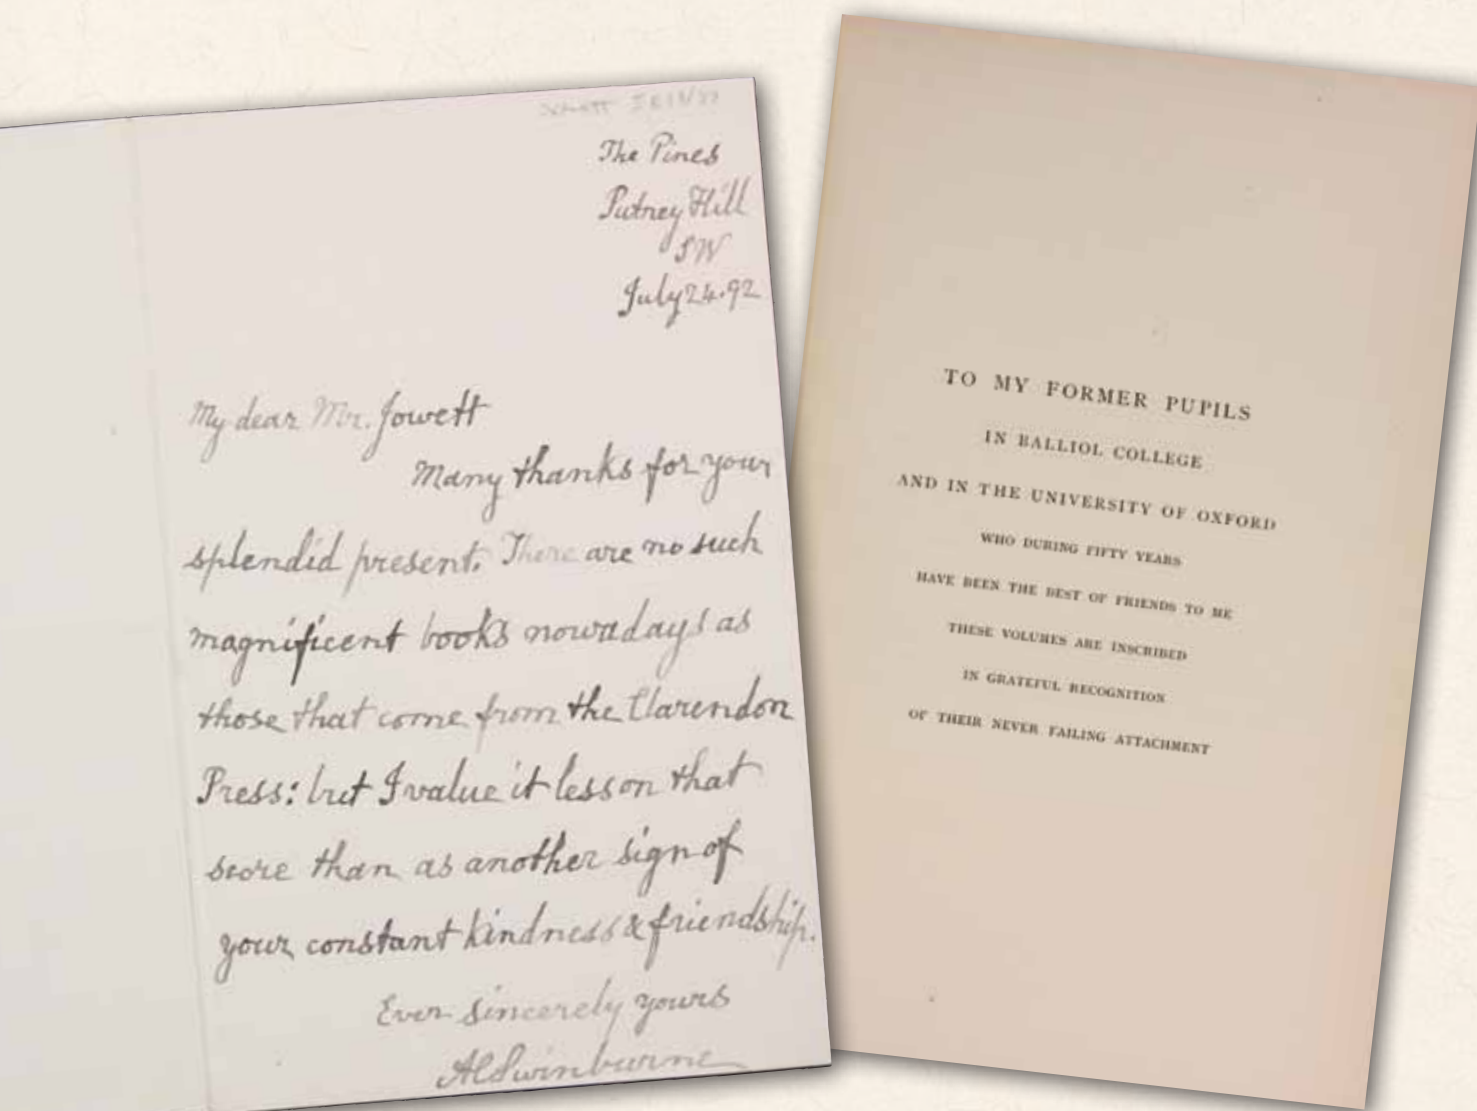 The Pines
Putney Hill
SW
July 24. 92
My dear Mr. Jowett
Many thanks for your
splendid present. There are no such
magnificent books nowadays as
those that come from the Clarendon
Press: but I value it less on that
score than as another sign of
your constant kindness & friendship.
Ever sincerely yours
ACSwinburne
TO MY FORMER PUPILS
IN BALLIOL COLLEGE
AND IN THE UNIVERSITY OF OXFORD
WHO DURING FIFTY YEARS
HAVE BEEN THE BEST OF FRIENDS TO ME
THESE VOLUMES ARE INSCRIBED
IN GRATEFUL RECOGNITION
OF THEIR NEVER FAILING ATTACHMENT